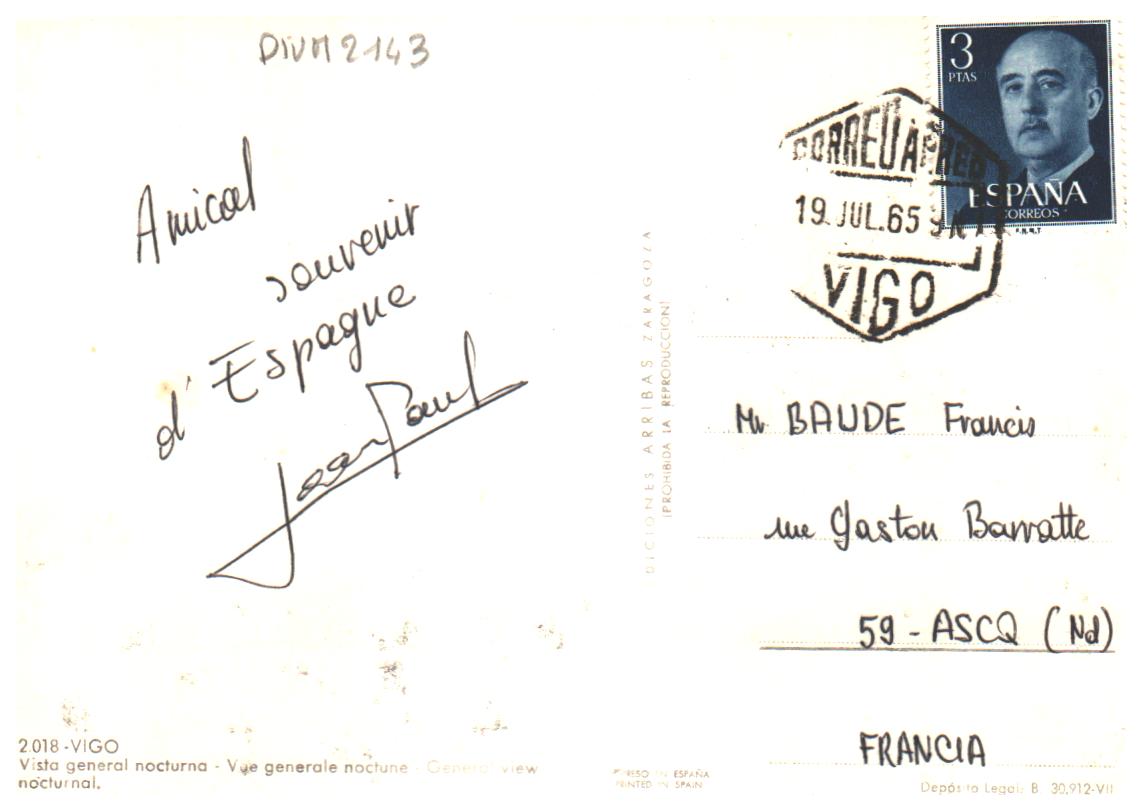 DIVM2143
Amical
souvenir
d'Espagne
Jean Paul
2.018 - VIGO
Vista general nocturna - Vue generale noctune - General view
nocturnal.
DICIONES ARRIBAS ZARAGOZA
(PROHIBIDA LA REPRODUCCION)
3
PTAS
ESPAÑA
CORREOS
F.N.M.T
CORREO AEREO
19 JUL.65
VIGO
Mr BAUDE Francis
rue Gaston Barratte
59 - ASCQ (Nd)
FRANCIA
PRESO EN ESPAÑA
PRINTED IN SPAIN
Depósito Legal: B. 30.912-VII